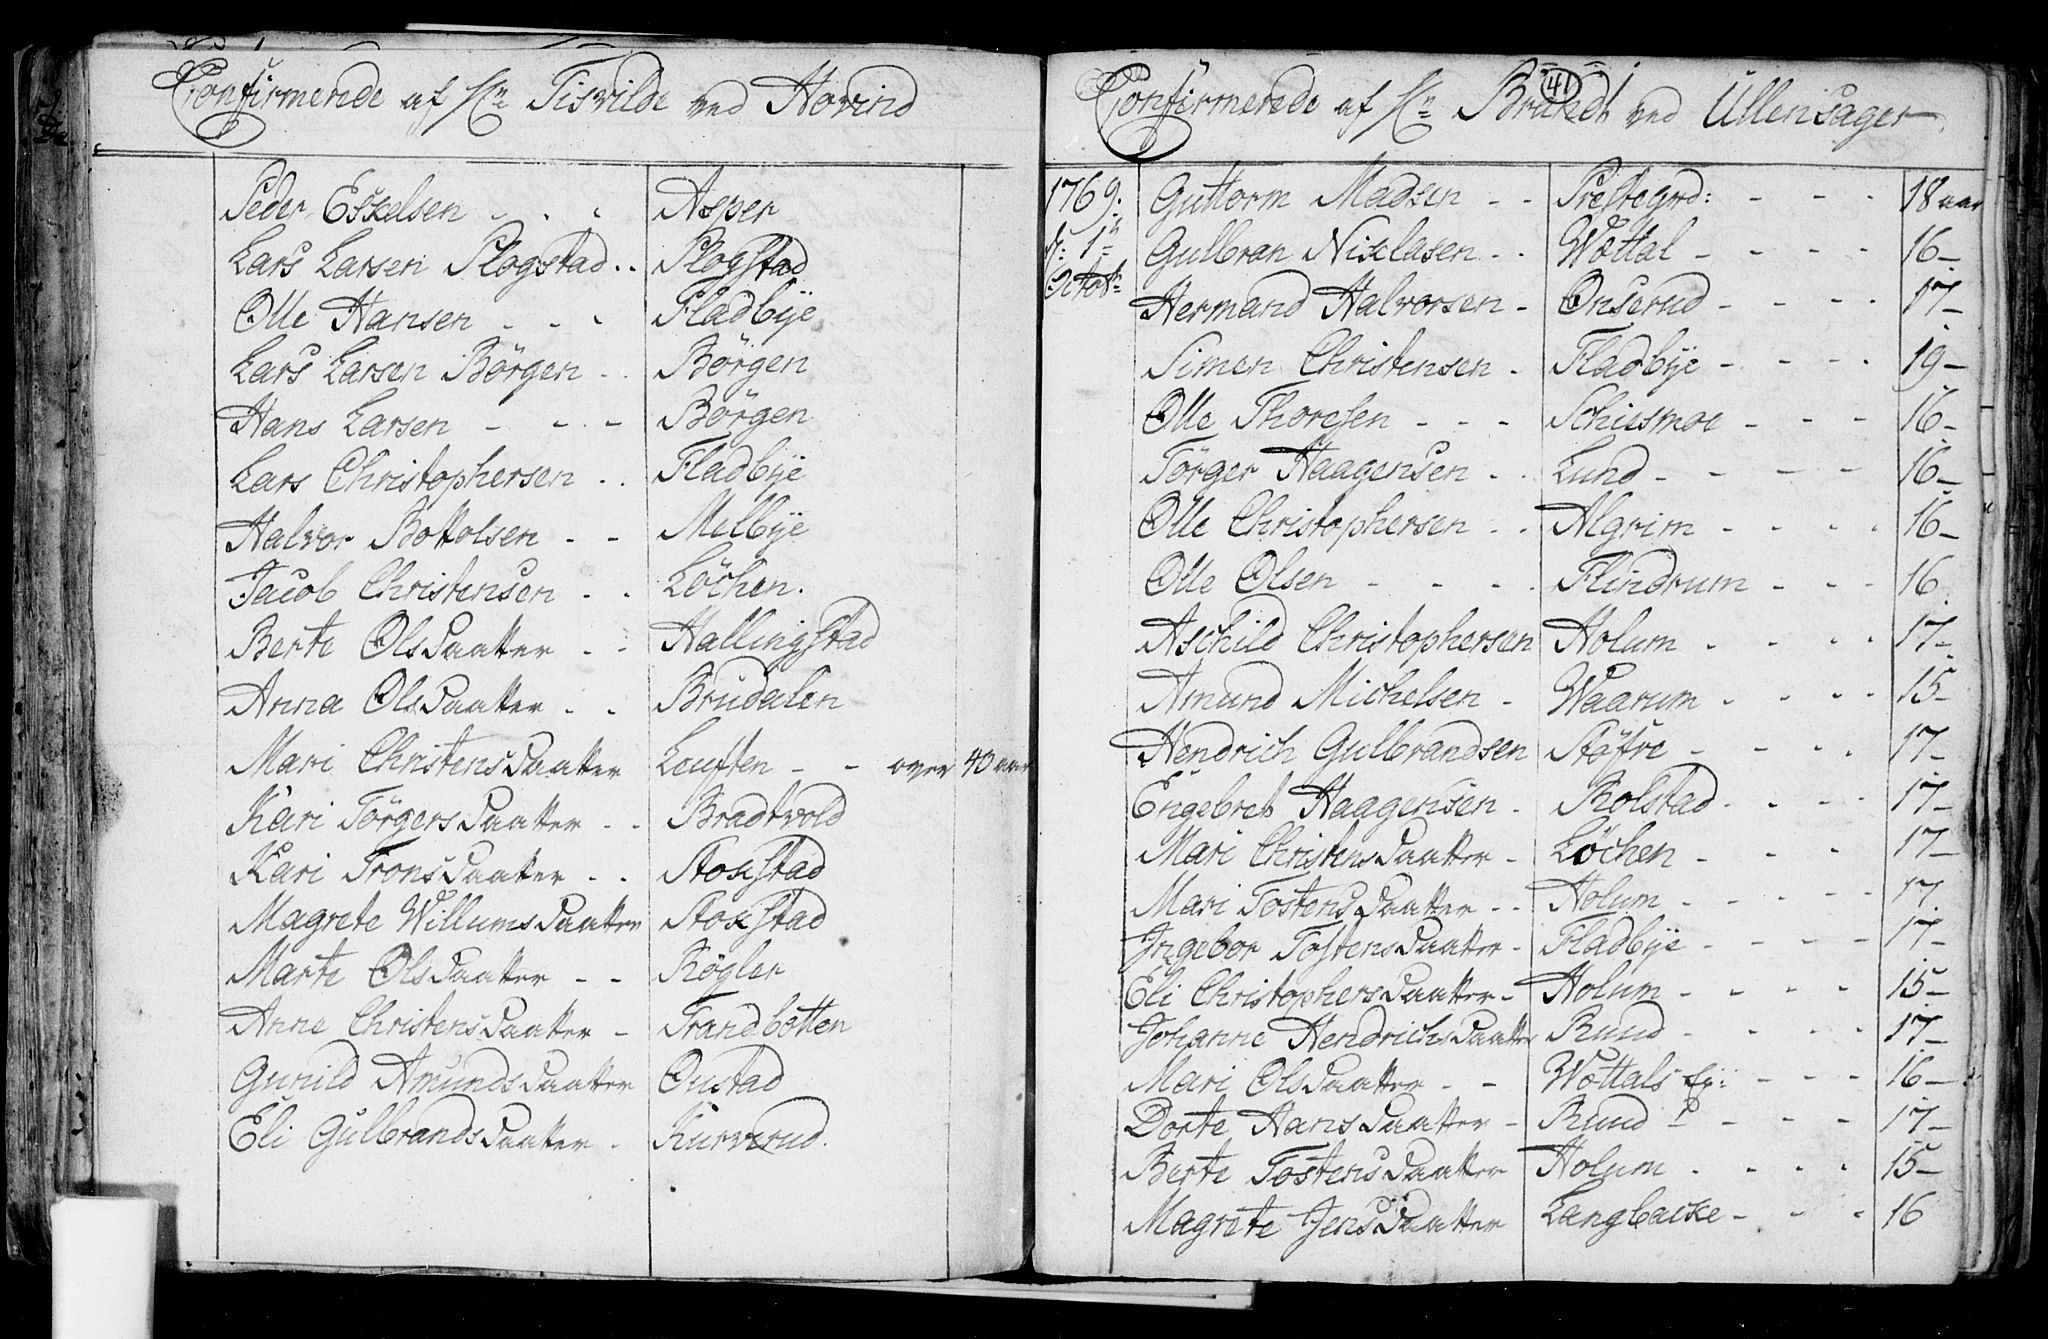 Confirmerede af Hr Tisvilde ved Hovind
Peder Eskelsen - - - Asper
Lars Larsen Plogstad - - Plogstad
Olle Hansen - - - Fladbÿe
Lars Larsen Börgen - - Börgen
Hans Larsen - - - Börgen
Lars Christophersen - - Fladbÿe
Halvor Bottolsen - - Melbÿe
Jacob Christensen - - Löchen.
Berte OlsDaatter - - Hallingstad
Anna OlsDaatter - - Brudalen
Mari ChristensDaatter Leuften - - over 40 aar
Kari TörgersDaatter - - Bradtvold
Kari TronsDaatter - - Stoxstad
Magrete WillumsDaatter Stoxstad
Marte OlsDaatter - - Rögler
Anne ChristensDaatter - Trandbotten
Gunild AmundsDaatter Oustad
Eli GulbrandsDaatter - Kurverud.
41
Confirmerede af Hr Brandt ved Ullensager
1769: Guttorm Madsen - - Prestegrd: - - - 18 aar
d: 1n Gulbran Nixlasen - - Wottal - - - - 16 -
Octobr Hermand Halvorsen - Onserud - - - - 17 -
Simen Christensen - Fladbÿe - - - - 19 -
Olle Thoresen - - - Schiesmoe - - - 16 -
Törger Haagensen - - Lund - - - - 16 -
Olle Christophersen - - Algrim - - - - 16 -
Olle Olsen - - - - Flindrum - - - 16
Aschild Christophersen Holum - - - - 17 -
Amund Michelsen - Waarum - - - - 15 -
Hendrich Gulbrandsen Stöfre - - - - 17 -
Engebret Haagensen - Rolstad - - - - 17 -
Mari ChristensDaatter - Löchen - - - 17 -
Mari TostensDaatter - - Holum - - - - 17
Ingebor TostensDaatter - Fladbÿe - - - - 17 -
Eli ChristophersDaatter - Holum - - - - 15 -
Johanne HendrichsDaatter Rund - - - - 17 -
Mari OlsDaatter - - Wottals Ej: - - - 16 -
Dorte HansDaatter - Rund - - - - 17 -
Berte TostensDaatter Holum - - - - 15 -
Magrete JensDaatter Langbacke - - - 16